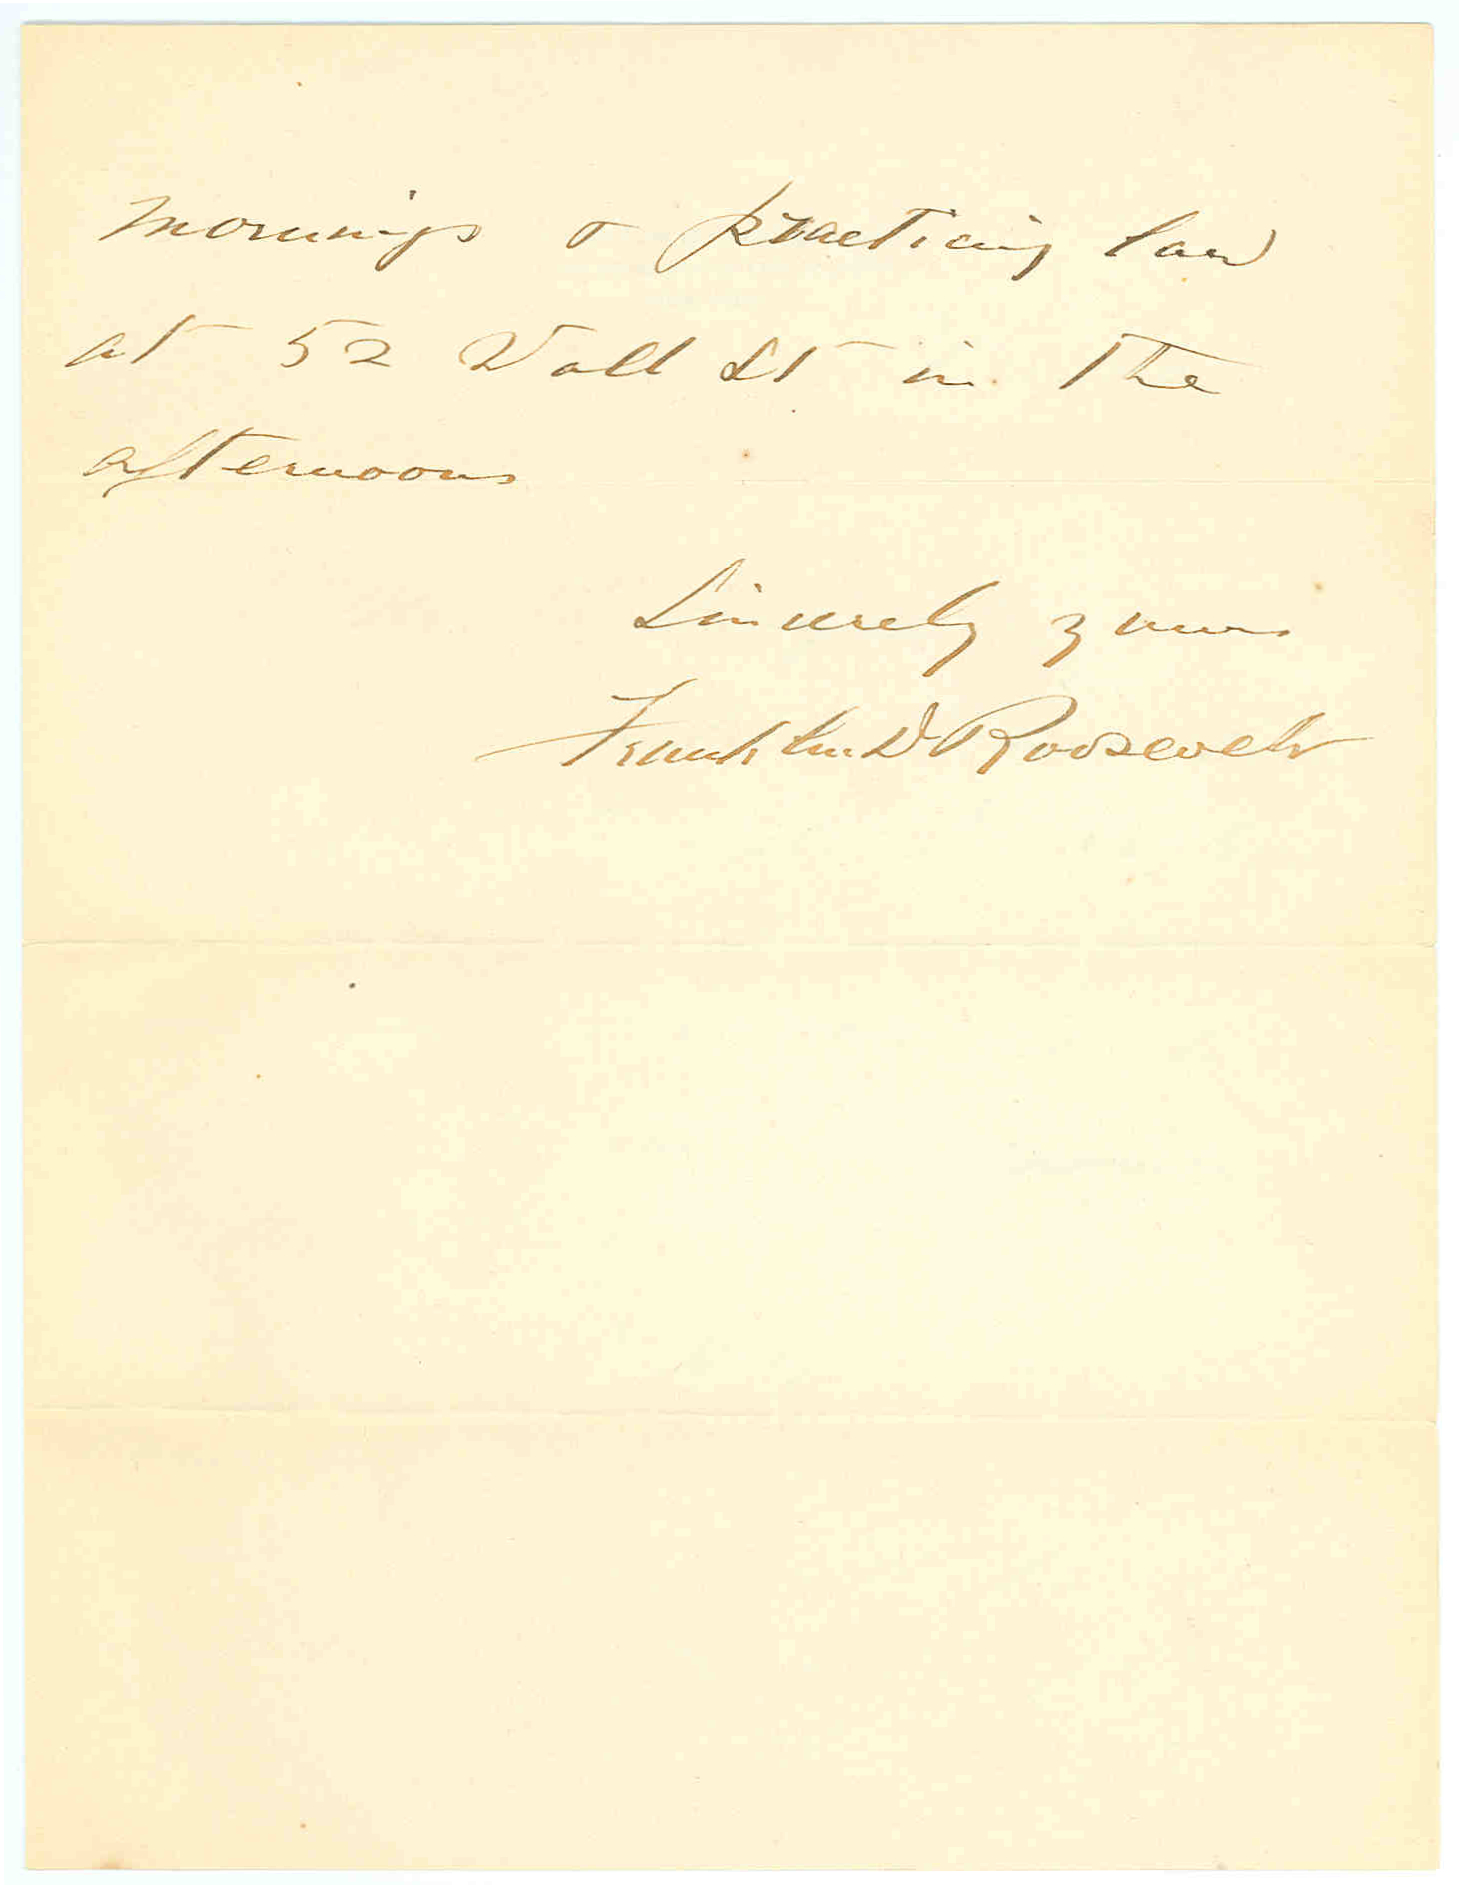 mornings & practicing law
at 52 Wall St in the
afternoons
Sincerely yours
Franklin D Roosevelt